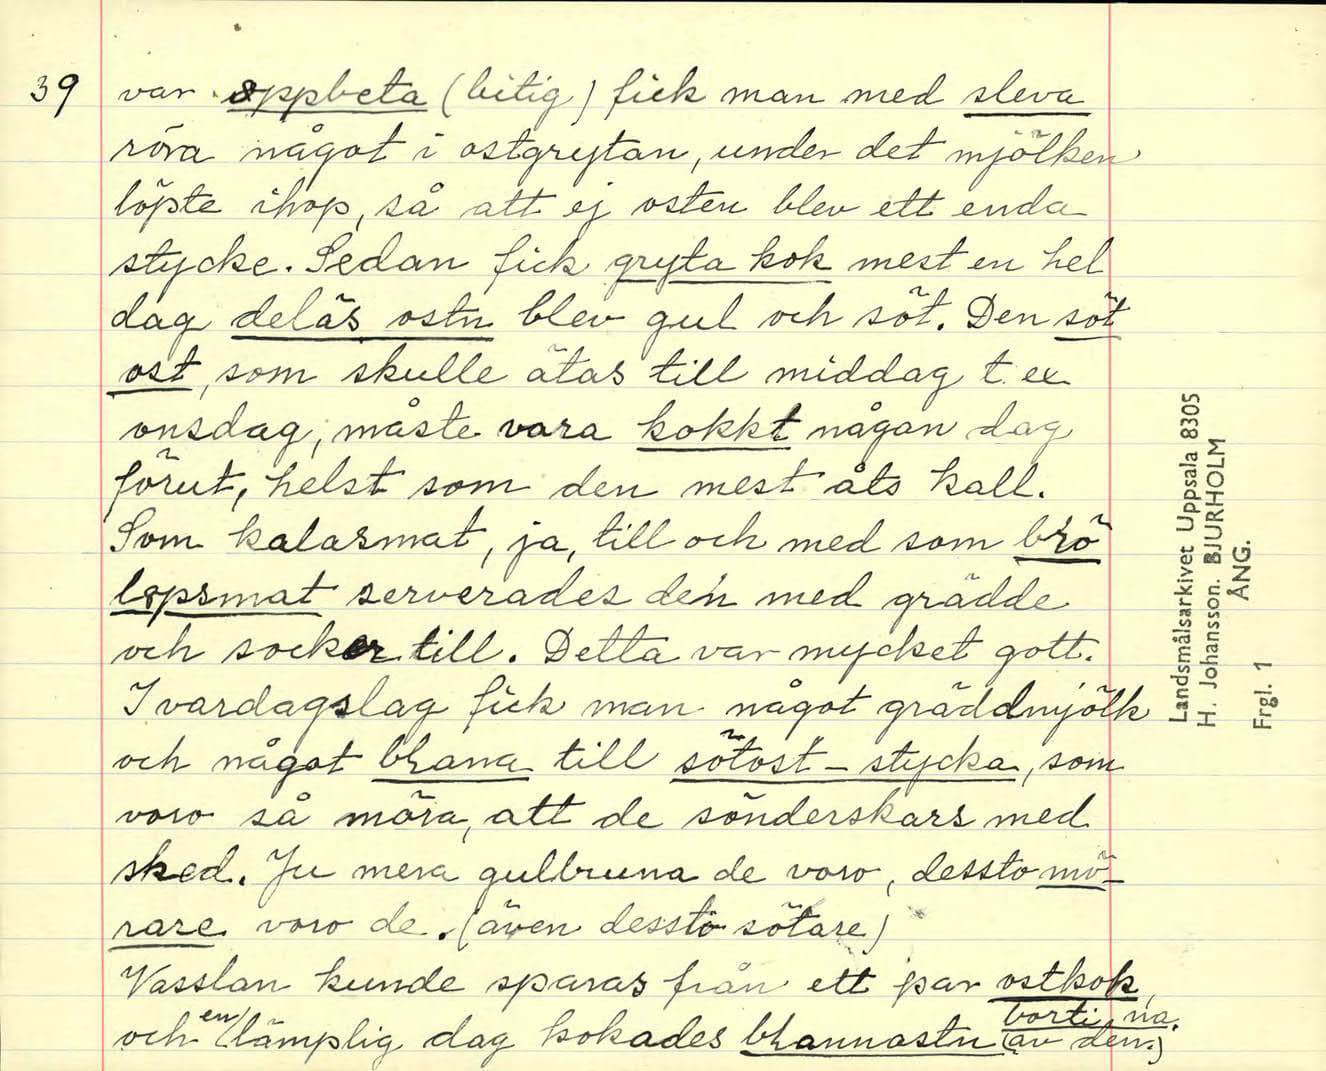 39 var oppbeta (bitig) fick man med sleva
röra något i ostgrytan, under det mjölken
löpte ihop, så att ej osten blev ett enda
stycke. Sedan fick gryta kok mest en hel
dag deläs ostn blev gul och söt. Den söt
ost, som skulle ätas till middag t. ex.
onsdag, måste vara kokkt någon dag
förut, helst som den mest åts kall.
Som kalasmat, ja, till och med som brö
lopsmat serverades den med grädde
och socker till. Detta var mycket gott.
I vardagslag fick man något gräddmjölk
och något till sötost-stycka, som
voro så möra, att de sönderskars med
sked. Ju mera gulbruna de voro, dessto mö-
rare voro de. (även dessto sötare)
Vasslan kunde sparas från ett par ostkok,
och en lämplig dag kokades borti na. (av den.)
Landsmålsarkivet Uppsala 8305
H. Johansson. BJURHOLM
ÅNG.
Frgl. 1